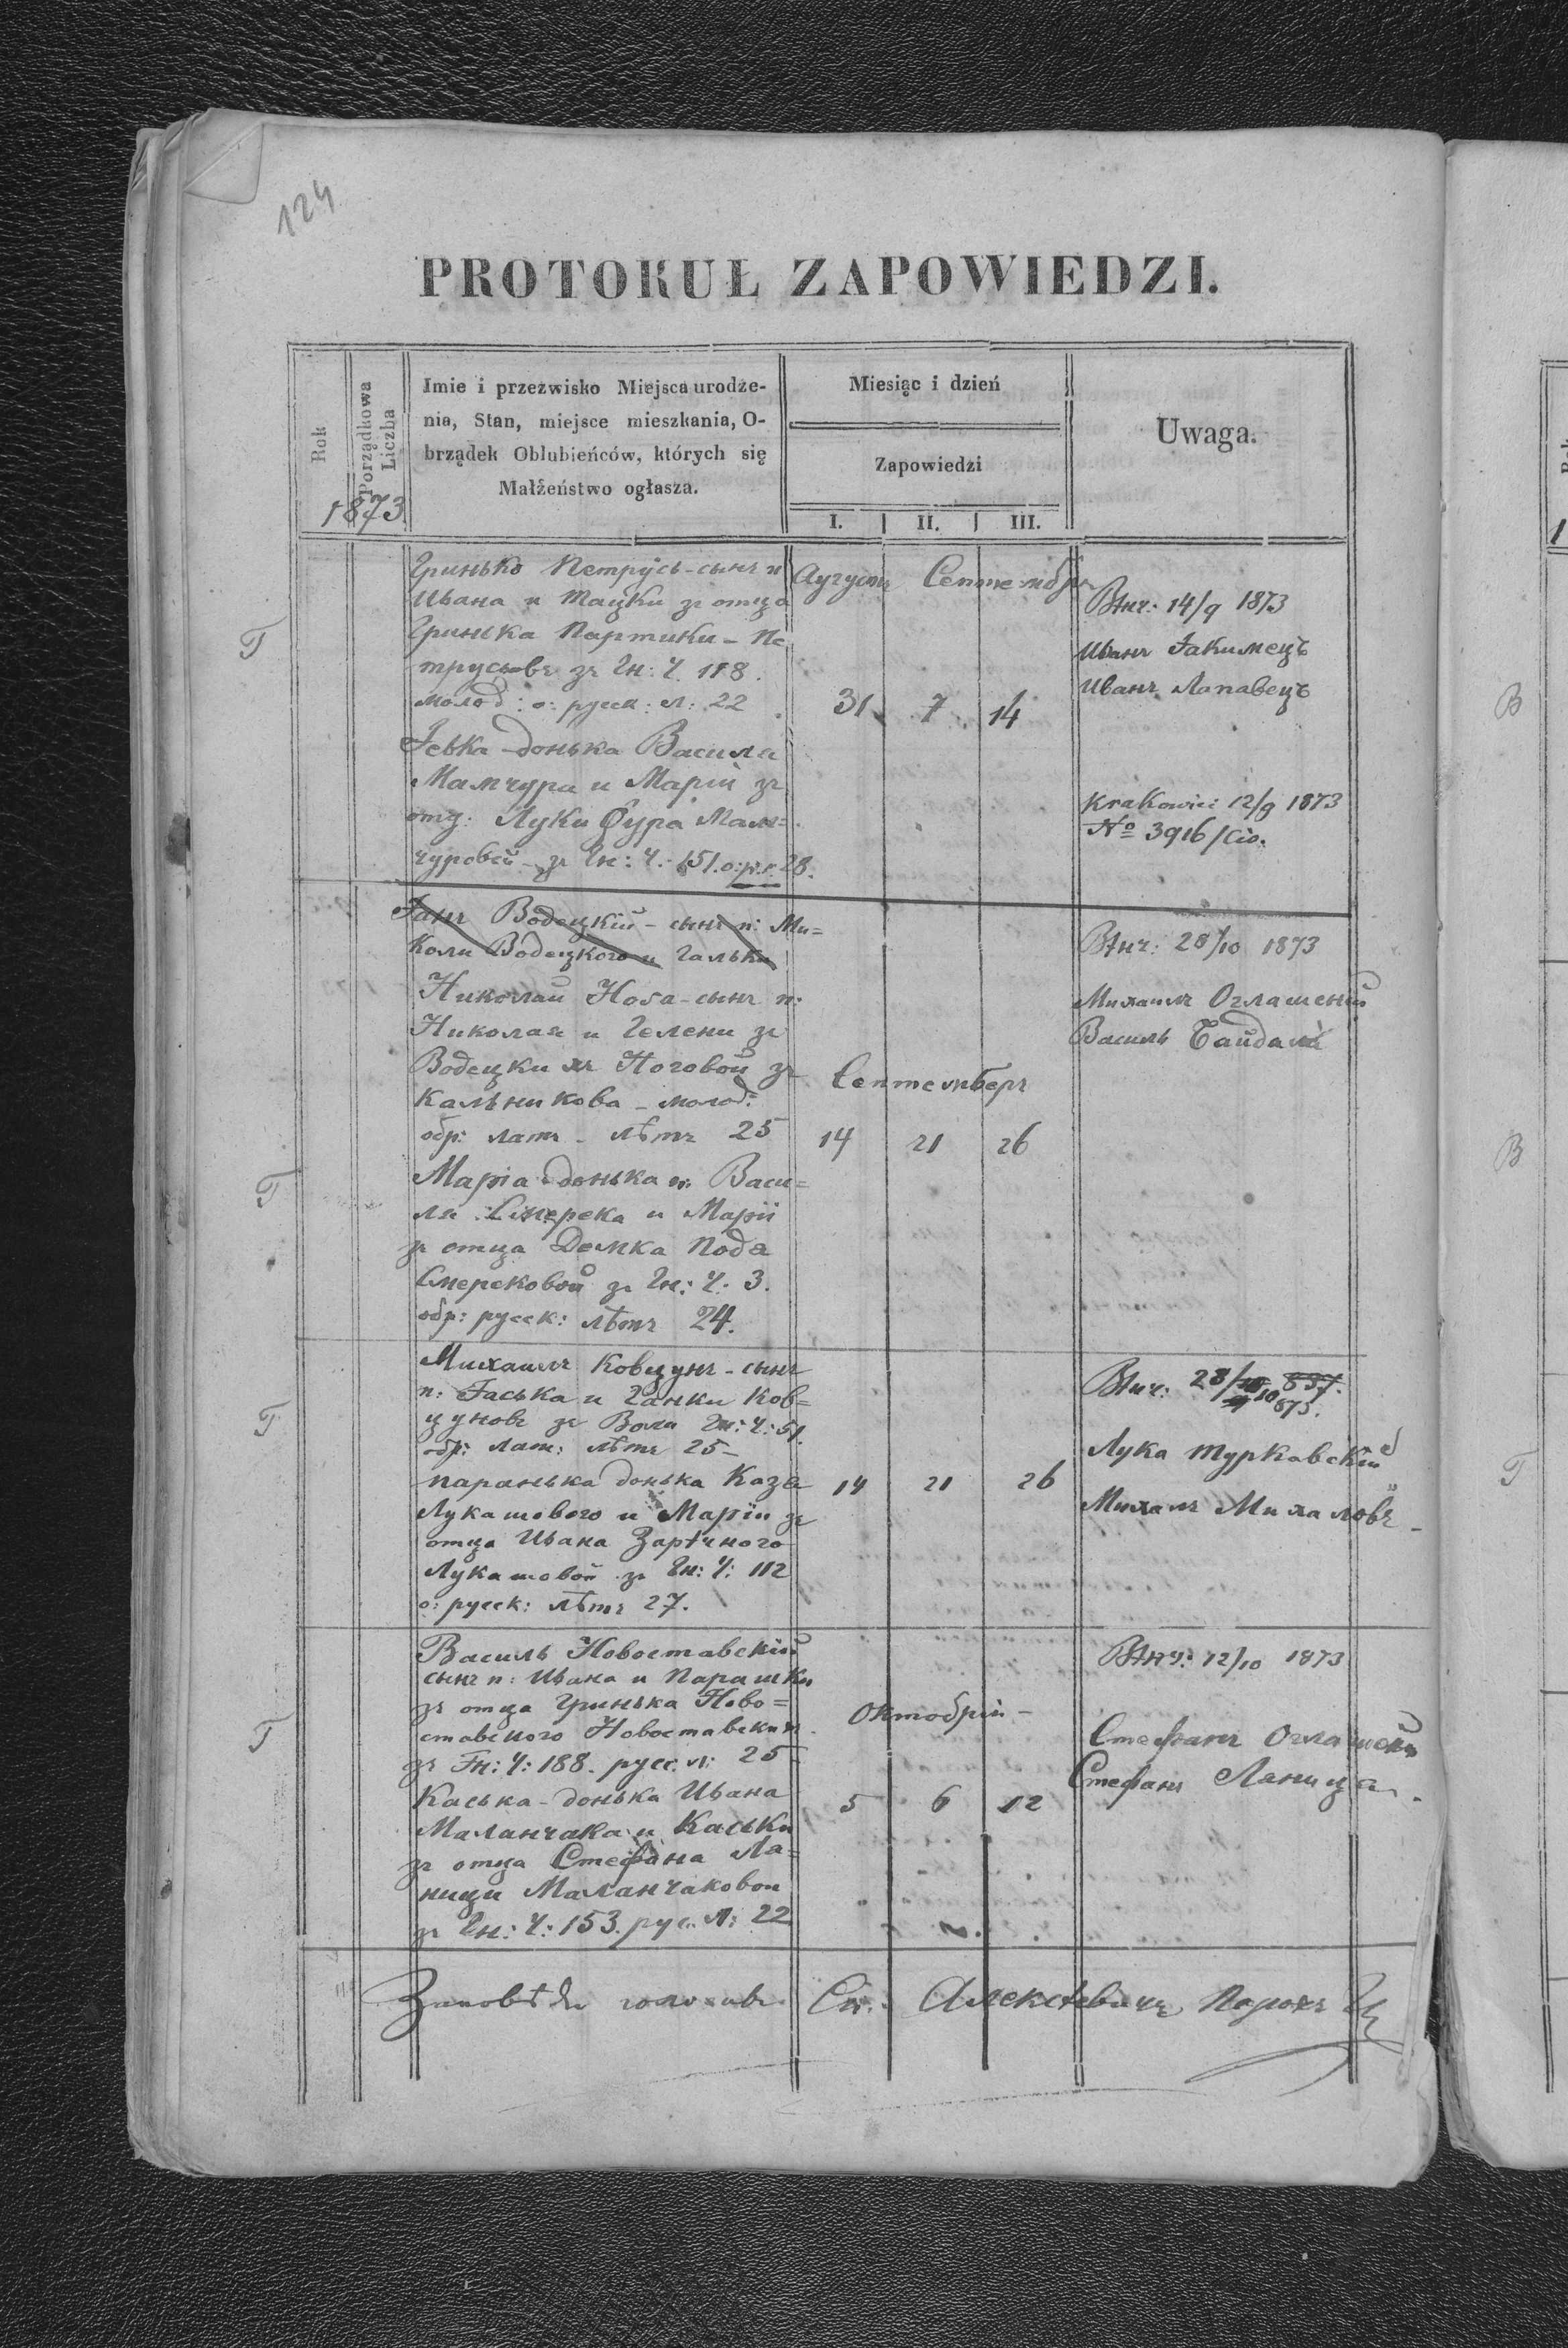 124
PROTOKUŁ ZAPOWIEDZI.
Rok
Porządkowa
Liczba
1873
Imie i przezwisko Miejsca urodze-
nia, Stan, miejsce mieszkania, O-
brządek Oblubieńców, których się
Małżeństwo ogłasza.
Miesiąc i dzień
Zapowiedzi
I. II. III.
Uwaga.
Т
Гринько Петрусь - сынъ п
Ивана и Тацки зъ отца
Гринька Партики - Пе
трусьовъ зъ Гн: Ч. 118.
молод: о: русск: л: 22
Гевка донька Василя
Мамчура и Маріи зъ
отц: Луки Фура Мам=
чуровой зъ Гн: Ч: 151. о: р: л: 28.
Аугустъ Септембръ
31 7 14
Вѣнч: 14/9 1873
Иванъ Якимець
Иванъ Лапавець
Krakowiec 12/9 1873
№ 3916/Civ.
Ганъ Водецкій - сынъ п: Ми=
коли Водецкого и Гальки
Т
Николай Нога - сынъ п:
Николая и Гелени зъ
Водецкихъ Ноговой зъ
Кальникова - молод:
обр: лат - лѣтъ 25
Марія донька п: Васи=
ля Смерека и Маріи
зъ отца Демка Пода
Смерековой зъ Гн: Ч: 3.
обр: русск: лѣтъ 24.
Септемберъ
14 21 26
Вѣнч: 28/10 1873
Михаилъ Оглашеній
Василь Байдала
Т
Михаилъ Ковцунъ - сынъ
п: Гаська и Ганки Ков=
цуновъ зъ Воли Гн: Ч: 51.
обр: лат: лѣтъ 25 -
Паранька донька Каз
Лукашового и Маріи зъ
отца Ивана Зарѣчного
Лукашовой зъ Гн: Ч: 112
о: русск: лѣтъ 27.
14 21 26
Вѣнч: 28/10 873.
Лука Туркавскій
Михалъ Михаловъ
Т
Василь Новоставскій
сынъ п: Ивана и Парашки
зъ отца Гринька Ново=
ставского Новоставскихъ
зъ Гн: Ч: 188. русс. л: 25
Каська - донька Ивана
Маланчака и Каськи
зъ отца Стефана Ла=
ници Маланчаковой
зъ Гн: Ч: 153. рус. Л: 22
Октобрій -
5 6 12
Вѣнч: 12/10 1873
Стефанъ Оглашеній
Стефанъ Ланица.
Заповѣди голосивъ Сим. Алексѣевичъ Парохъ